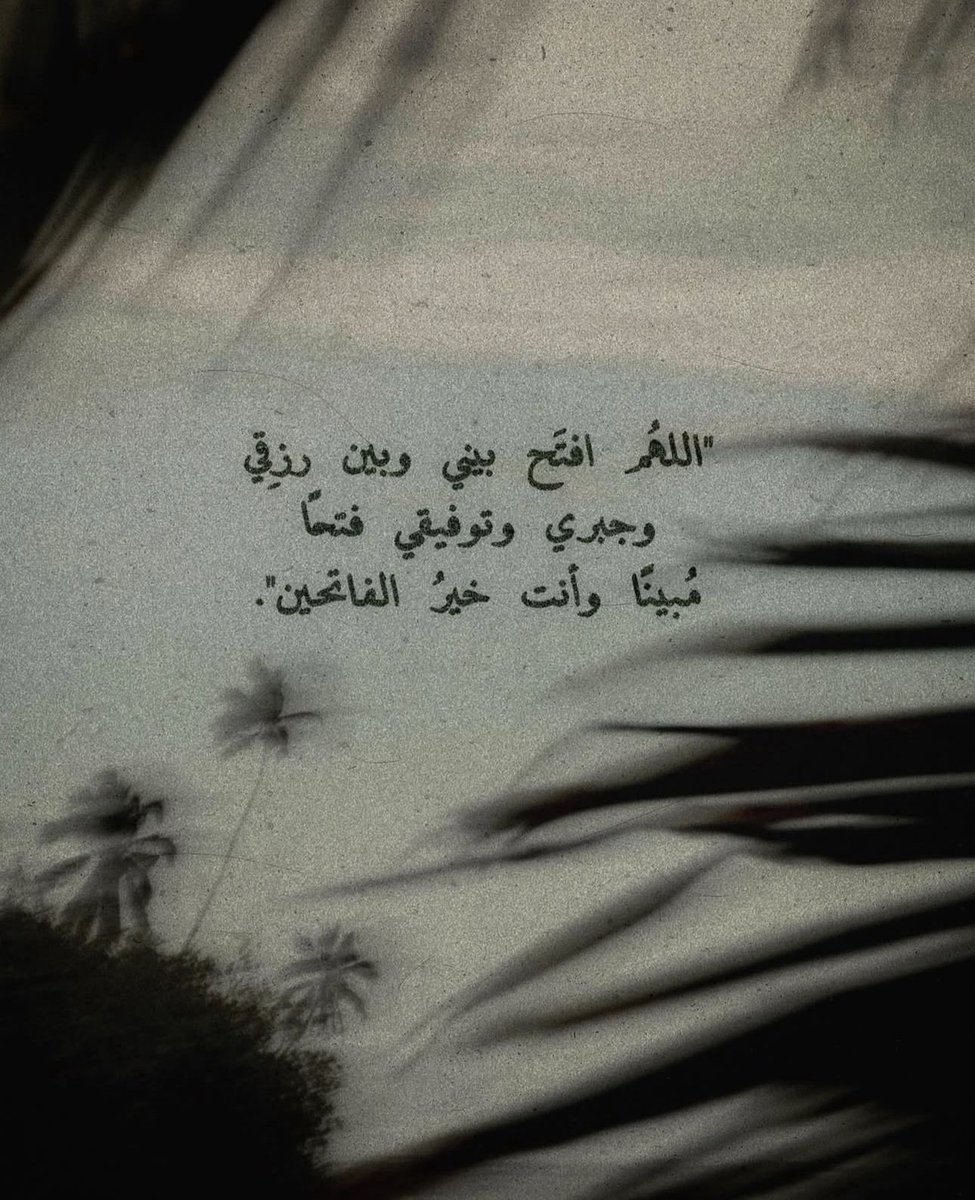 "اللهُم افتَح بيني وبين رزقِي
وجبري وتوفيقي فتحًا
مُبينًا وأنت خيرُ الفاتحين".